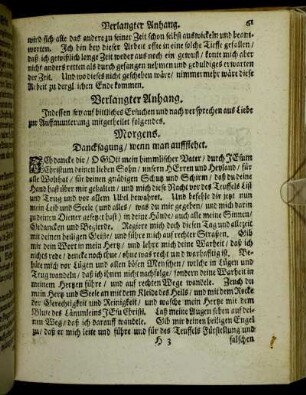 Verlangter Anhang. 61
wird sich alle dack andere zu seiner Zeit schon selbst auswickeln und beant-
worten. Ich bin bey dieser Arbeit offte in eine solche Tieffe gefallen/
daß ich gewißlich lange Zeit weder aus noch ein gewust/ konte mich aber
nicht anders retten als durch gefangen nehmen und geduldiges erwarten
der Zeit. Und wo dieses nicht geschehen wäre/ nimmermehr wäre diese
Arbeit zu dergleichen Ende kommen.
Verlangter Anhang.
Indessen sey auf bittliches Ersuchen und nach versprechen aus Liebe
zur Auffmunterung mitgetheilet folgendes.
Morgens.
Dancksagung/ wenn man auffstehet.
Ich dancke dir/ O GOtt mein himmlischer Vater/ durch JEsum
Christum deinen lieben Sohn/ unsern HErren und Heyland/ für
alle Wolthat/ für deinen gnädigen Schutz und Schirm/ daß du deine
Hand hast über mir gehalten/ und mich diese Nacht vor des Teuffels List
und Trug und vor allem Übel bewahret. Und befehle dir jetzt nun
mein Leib und Seele/ und alles/ was du mir gegeben/ und mich darin
zu deinen Diener gesetzt hast/ in deine Hände/ auch alle meine Sinnen/
Gedancken und Begierde. Regiere mich doch diesen Tag und allezeit
mit deinen heiligen Geiste/ und führe mich auf rechter Strassen. Gib
mir dein Wort in mein Hertz/ und lehre mich deine Warheit/ daß ich
nichts rede/ dencke noch thue/ ohne was recht und warhafftig ist. Be-
hüte mich vor Lügen und allen bösen Menschen/ welche in Lügen und
Trug wandeln/ daß ich ihnen nicht nachfolge/ sondern deine Warheit in
meinem Hertzen führe/ und auf rechten Wege wandele. Zeuch du
mein Hertz und Seele an mit dem Kleide des Heils/ und mit dem Rocke
der Gerechtigkeit und Reinigkeit/ und wasche mein Hertze mit dem
Blute des Lämmleins JEsu Christi. Laß meine Augen sehen auf dei-
nen Weg/ daß ich darauff wandele. Gib mir deinen heiligen Engel
zu/ daß er mich leite und führe und für des Teuffels Fürstellung und
H 3 falschen